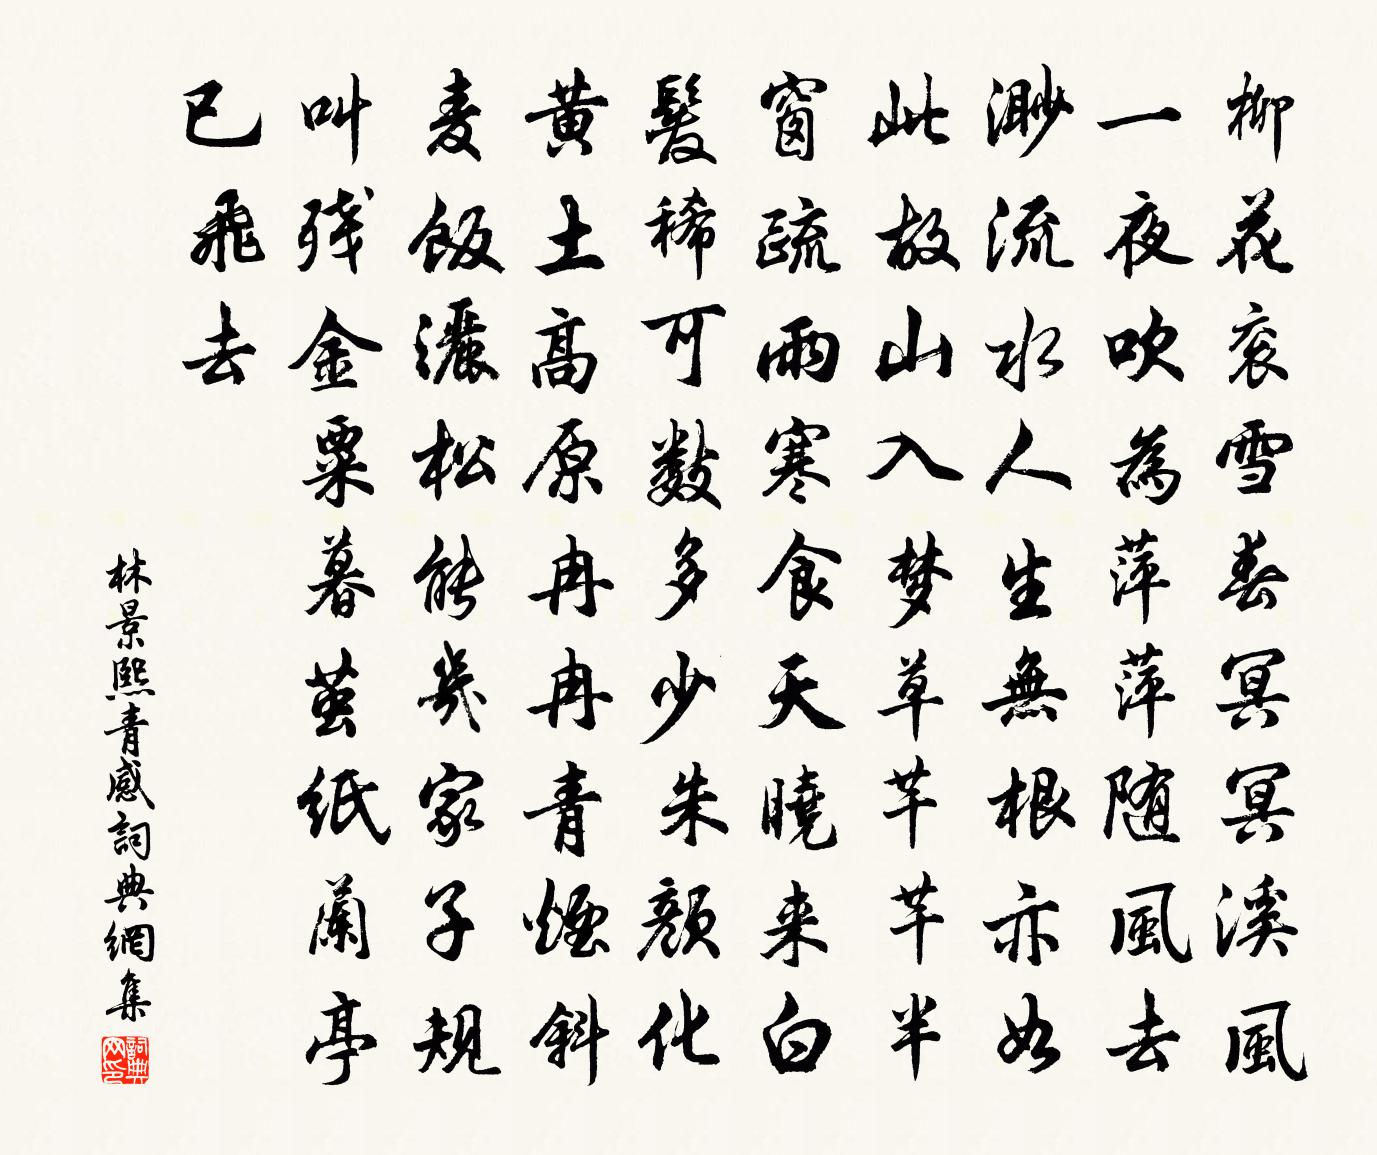 柳花衮雪春冥冥溪風
一夜吹為萍萍随風去
渺流水人生無根亦如
此故山入梦草芊芊半
窗疏雨寒食天曉来白
髮稀可数多少朱顏化
黄土高原冉冉青煙斜
麦飯灑松能幾家子規
叫残金粟暮茧紙蘭亭
已飛去
林景熙青感詞典網集
詞典网印